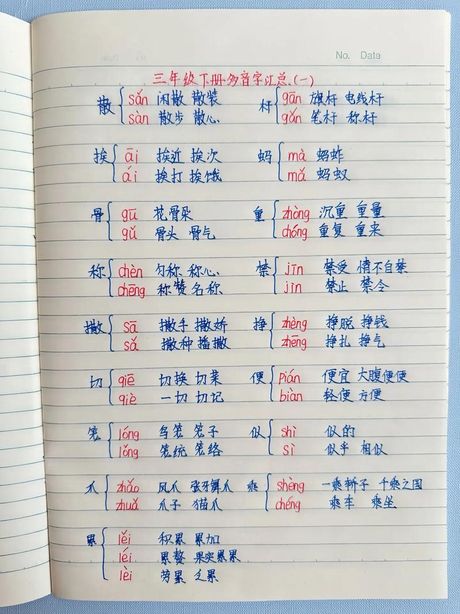 No. Data
三年级下册多音字汇总(一)
散 sǎn 闲散 散装
sàn 散步 散心
杆 gān 旗杆 电线杆
gǎn 笔杆 称杆
挨 āi 挨近 挨次
ái 挨打 挨饿
蚂 mà 蚂蚱
mǎ 蚂蚁
骨 gū 花骨朵
gǔ 骨头 骨气
重 zhòng 沉重 重量
chóng 重复 重来
称 chèn 匀称 称心
chēng 称赞 名称
禁 jīn 禁受 情不自禁
jìn 禁止 禁令
撒 sā 撒手 撒娇
sǎ 撒种 播撒
挣 zhèng 挣脱 挣钱
zhēng 挣扎 挣气
切 qiē 切换 切菜
qiè 一切 切记
便 pián 便宜 大腹便便
biàn 轻便 方便
笼 lóng 鸟笼 笼子
lǒng 笼统 笼络
似 shì 似的
sì 似乎 相似
爪 zhǎo 风爪 张牙舞爪
zhuǎ 爪子 猫爪
乘 shèng 一乘轿子 千乘之国
chéng 乘车 乘坐
累 lěi 积累 累加
léi 累赘 果实累累
lèi 劳累 乏累